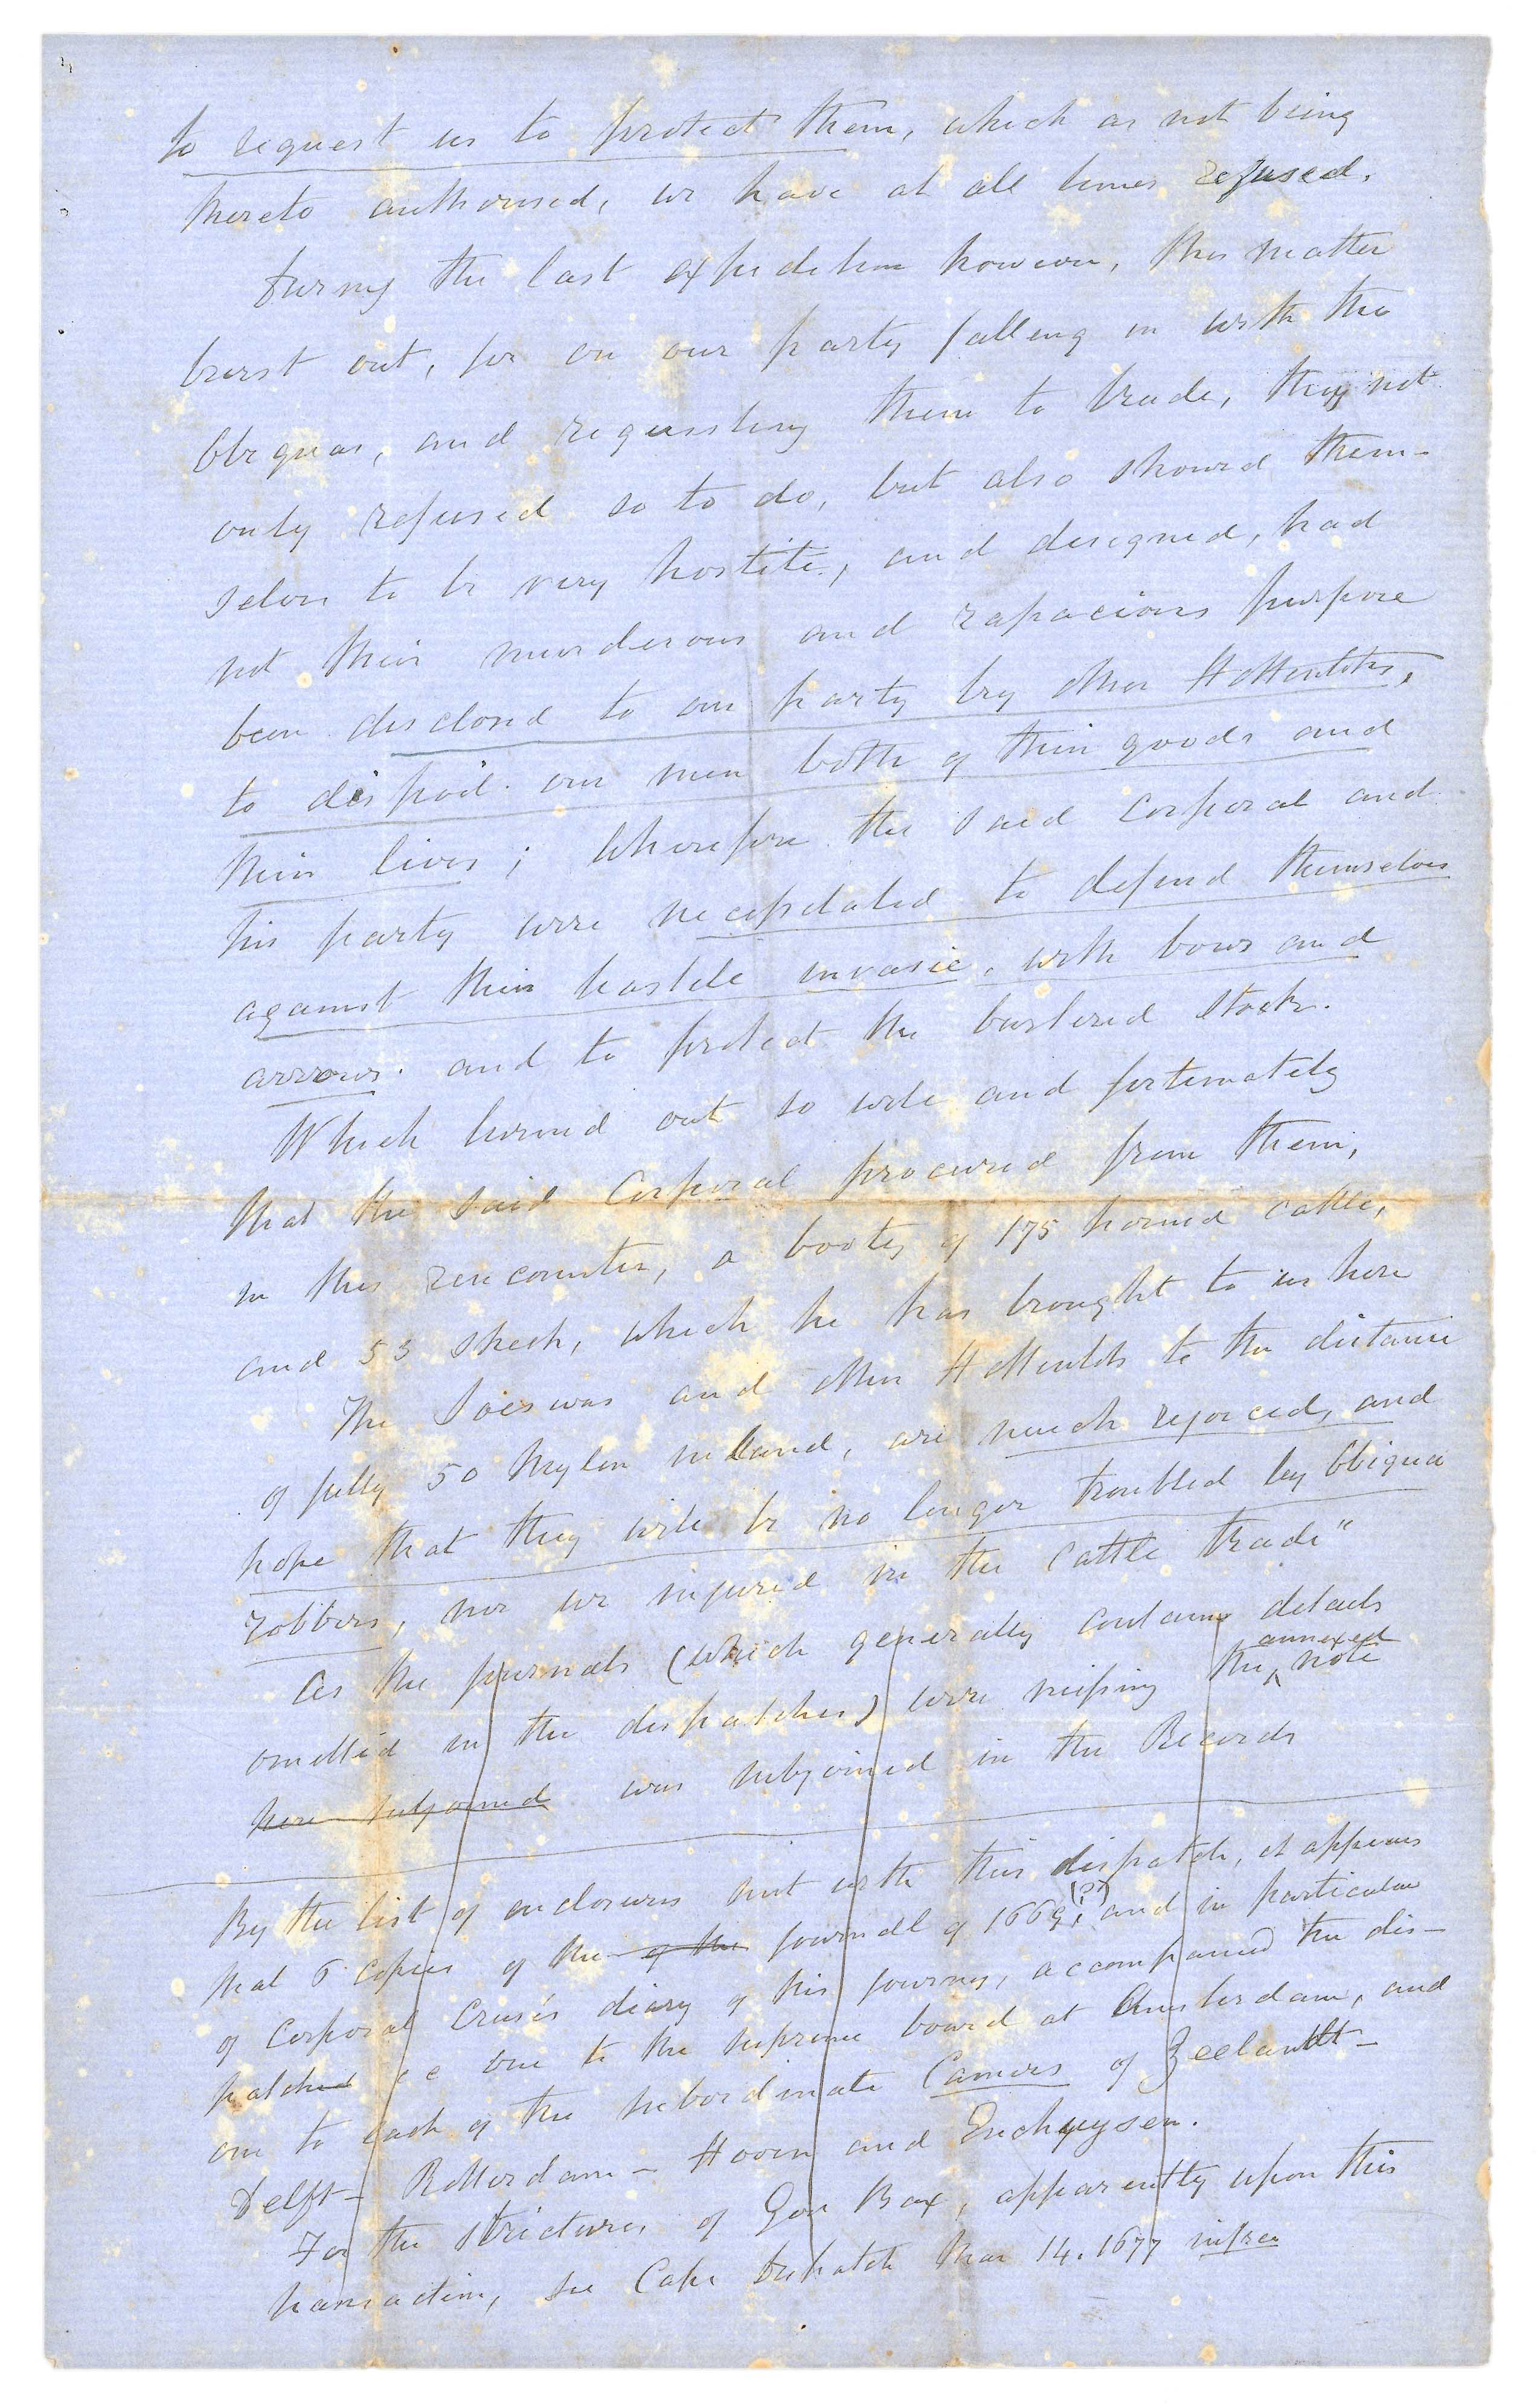 to request us to protect them, which as not being
thereto authorised, we have at all times refused.
During the last expedition however, this matter
burst out, for on our party falling in with the
Obiquas, and requesting them to trade, they not
only refused so to do, but also showed them-
selves to be very hostile, and designed, had
not their murderous and rapacious purpose
been disclosed to our party by other Hottentots,
to dispoil our men both of their goods and
their lives; Wherefore the said Corporal and
his party were necessitated to defend themselves
against their hostile invasie, with bows and
arrows. and to protect the bartered stock.
Which turned out so well and fortunately
that the said Corporal procured from them,
in this rencounter, a booty of 175 horned cattle,
and 53 sheep, which he has brought to us here
The Soeswas and other Hottentots to the distance
of fully 50 mylen inland, are much rejoiced, and
hope that they will be no longer troubled by Obiqua
robbers, nor we injured in the Cattle trade"
As the journals (which generally contain details
omitted in the dispatches) were missing the annexed note
here subjoined was subjoined in the Records
By the list of enclosures sent with this dispatch, it appears
that 6 copies of the of the journall of 1669, (?) and in particular
of Corporal Cruse's diary of his journey, accompanied the dis-
patched one to the supreme board at Amsterdam, and
one to each of the subordinate Camers of Zeelandt-
Delft- Rotterdam- Hoorn and Enchuysen.
For the strictures of Gov Bax, apparently upon this
transaction, see Cape Dispatch Mar 14. 1677 infra